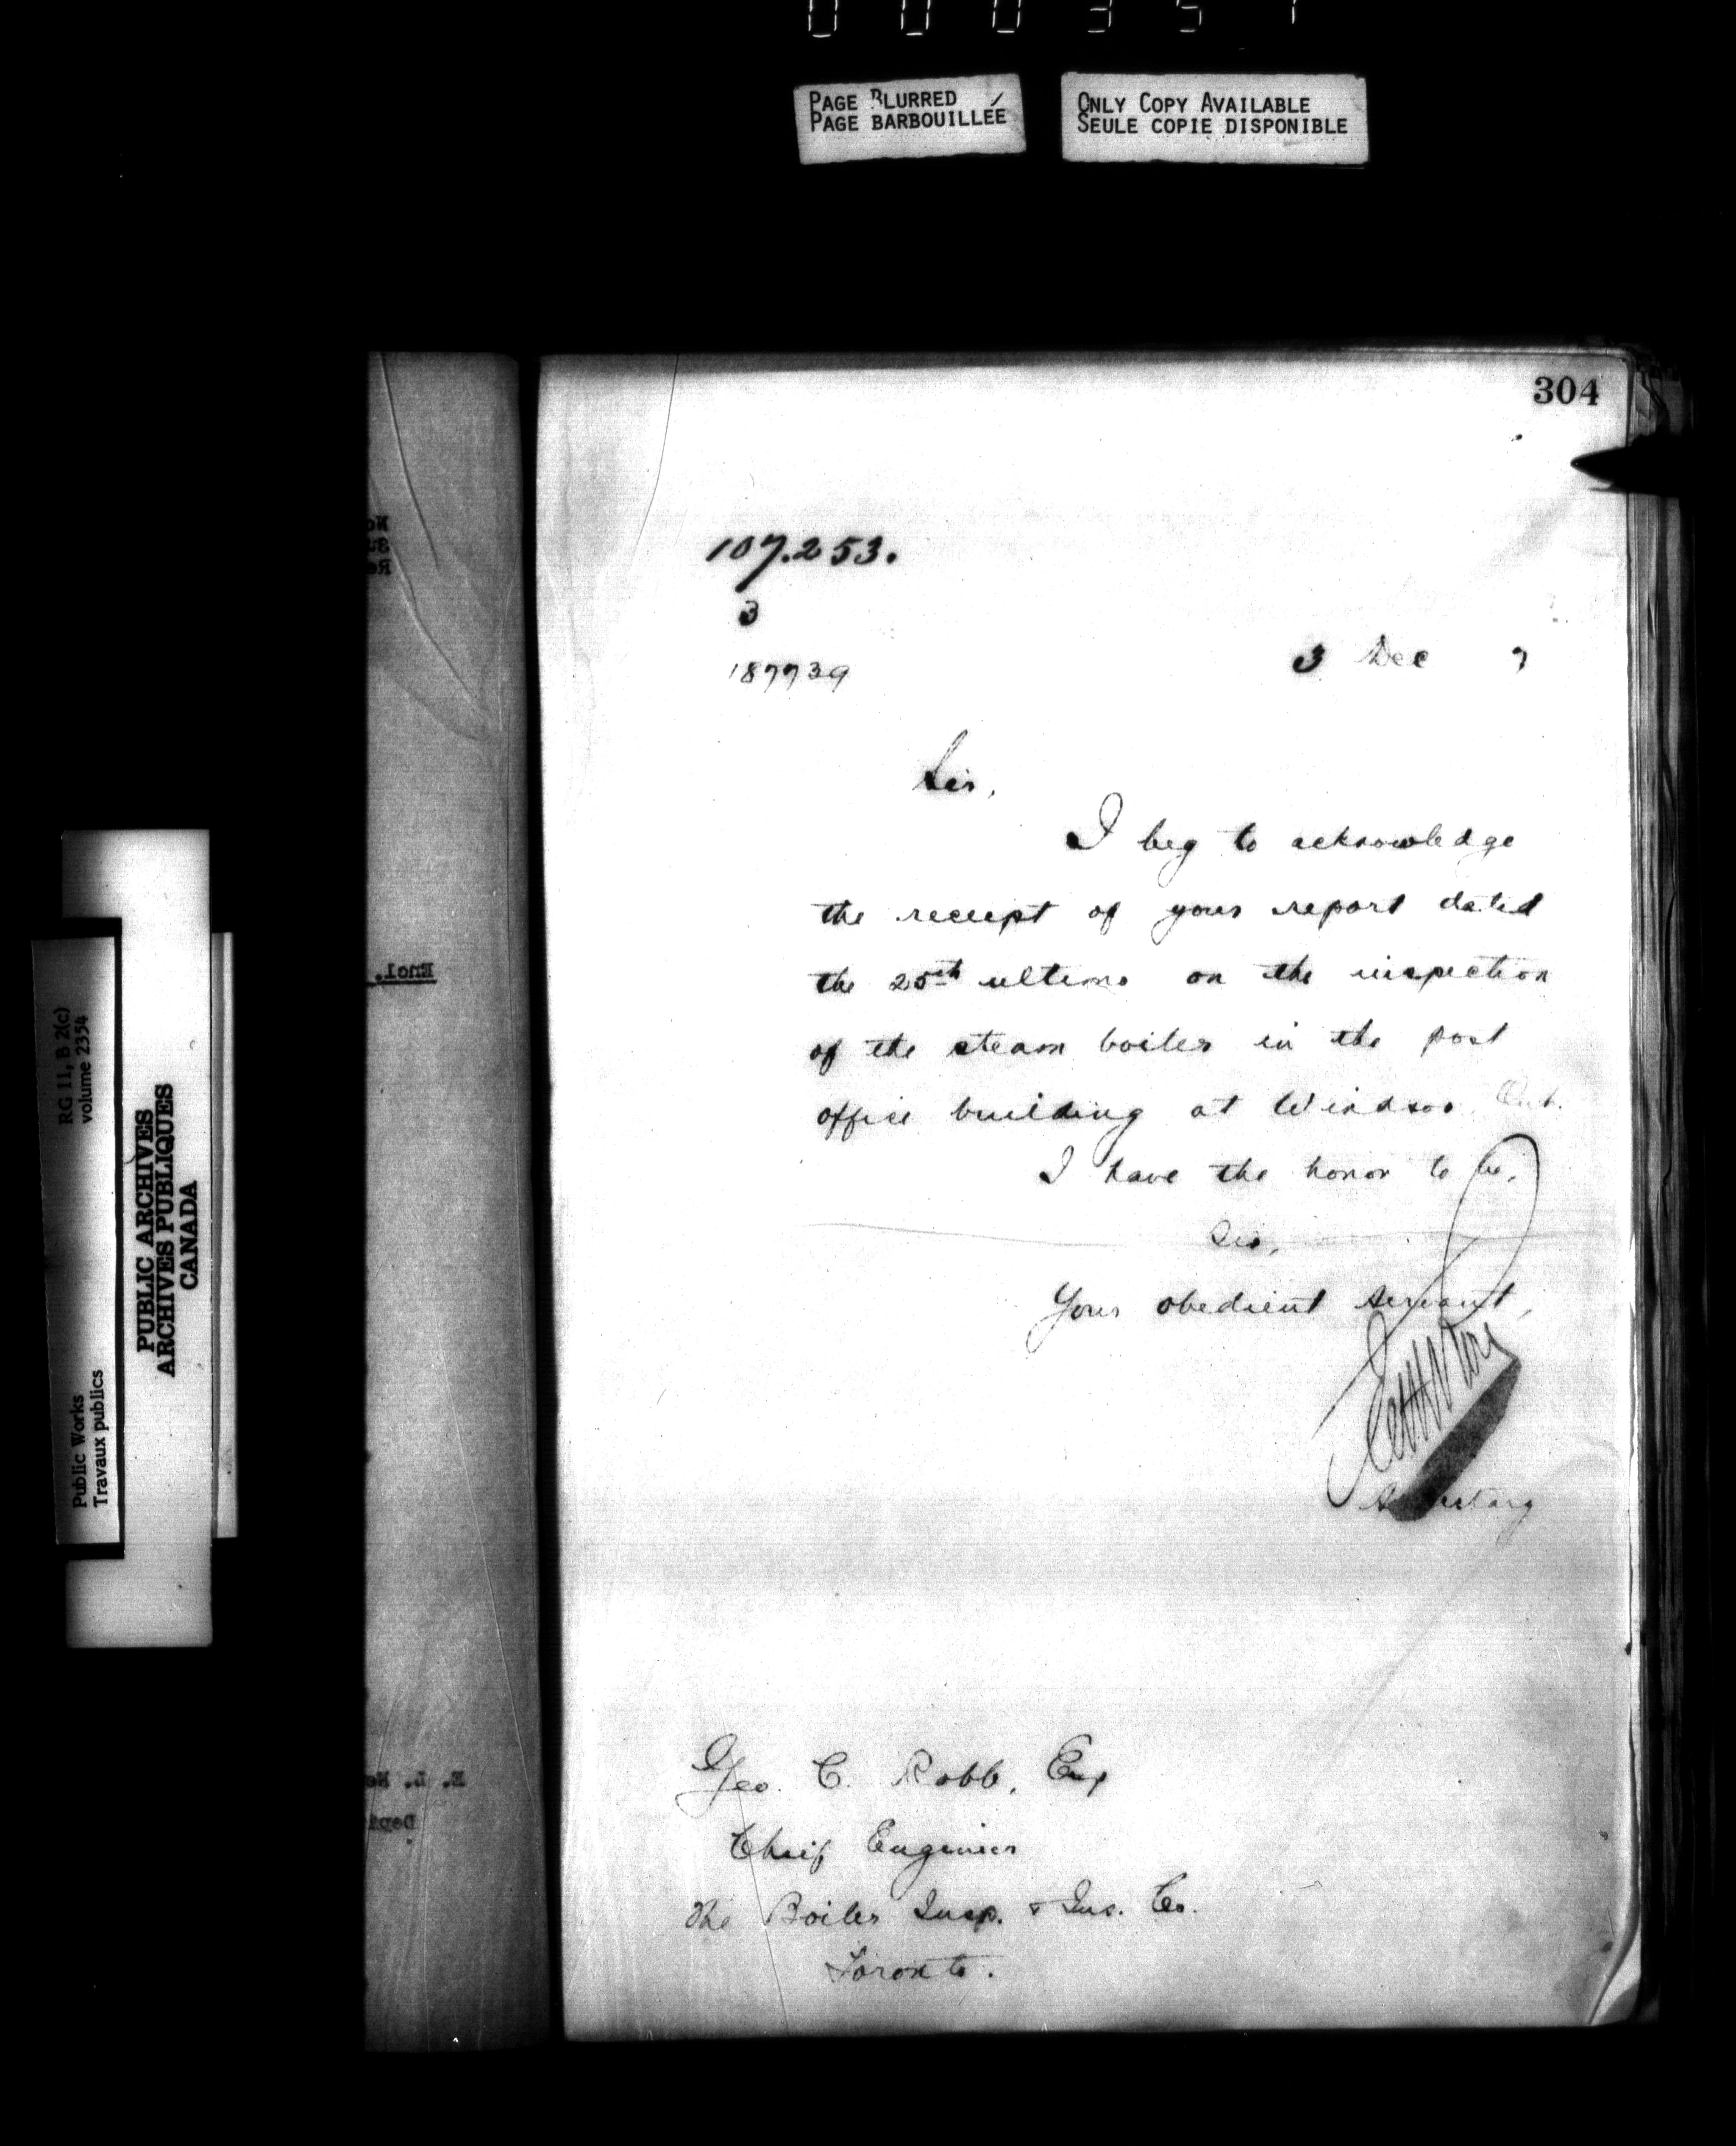 0 0 0 3 5 1
PAGE BLURRED
PAGE BARBOUILLÉE
ONLY COPY AVAILABLE
SEULE COPIE DISPONIBLE
304
107.253.
3
187739
3 Dec 7
Sir,
I beg to acknowledge
the receipt of your report dated
the 25th ultimo on the inspection
of the steam boiler in the post
office building at Windsor, Ont.
I have the honor to be,
Sir,
Your obedient servant,
Secretary
Geo. C. Robb, Esq
Chief Engineer
The Boiler Insp. & Ins. Co.
Toronto.
Encl.
RG 11, B 2(c)
volume 2354
Public Works
Travaux publics
PUBLIC ARCHIVES
ARCHIVES PUBLIQUES
CANADA